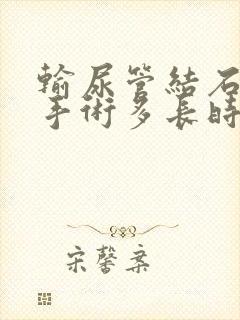 輸尿管結石
手術多長時
宋馨棄